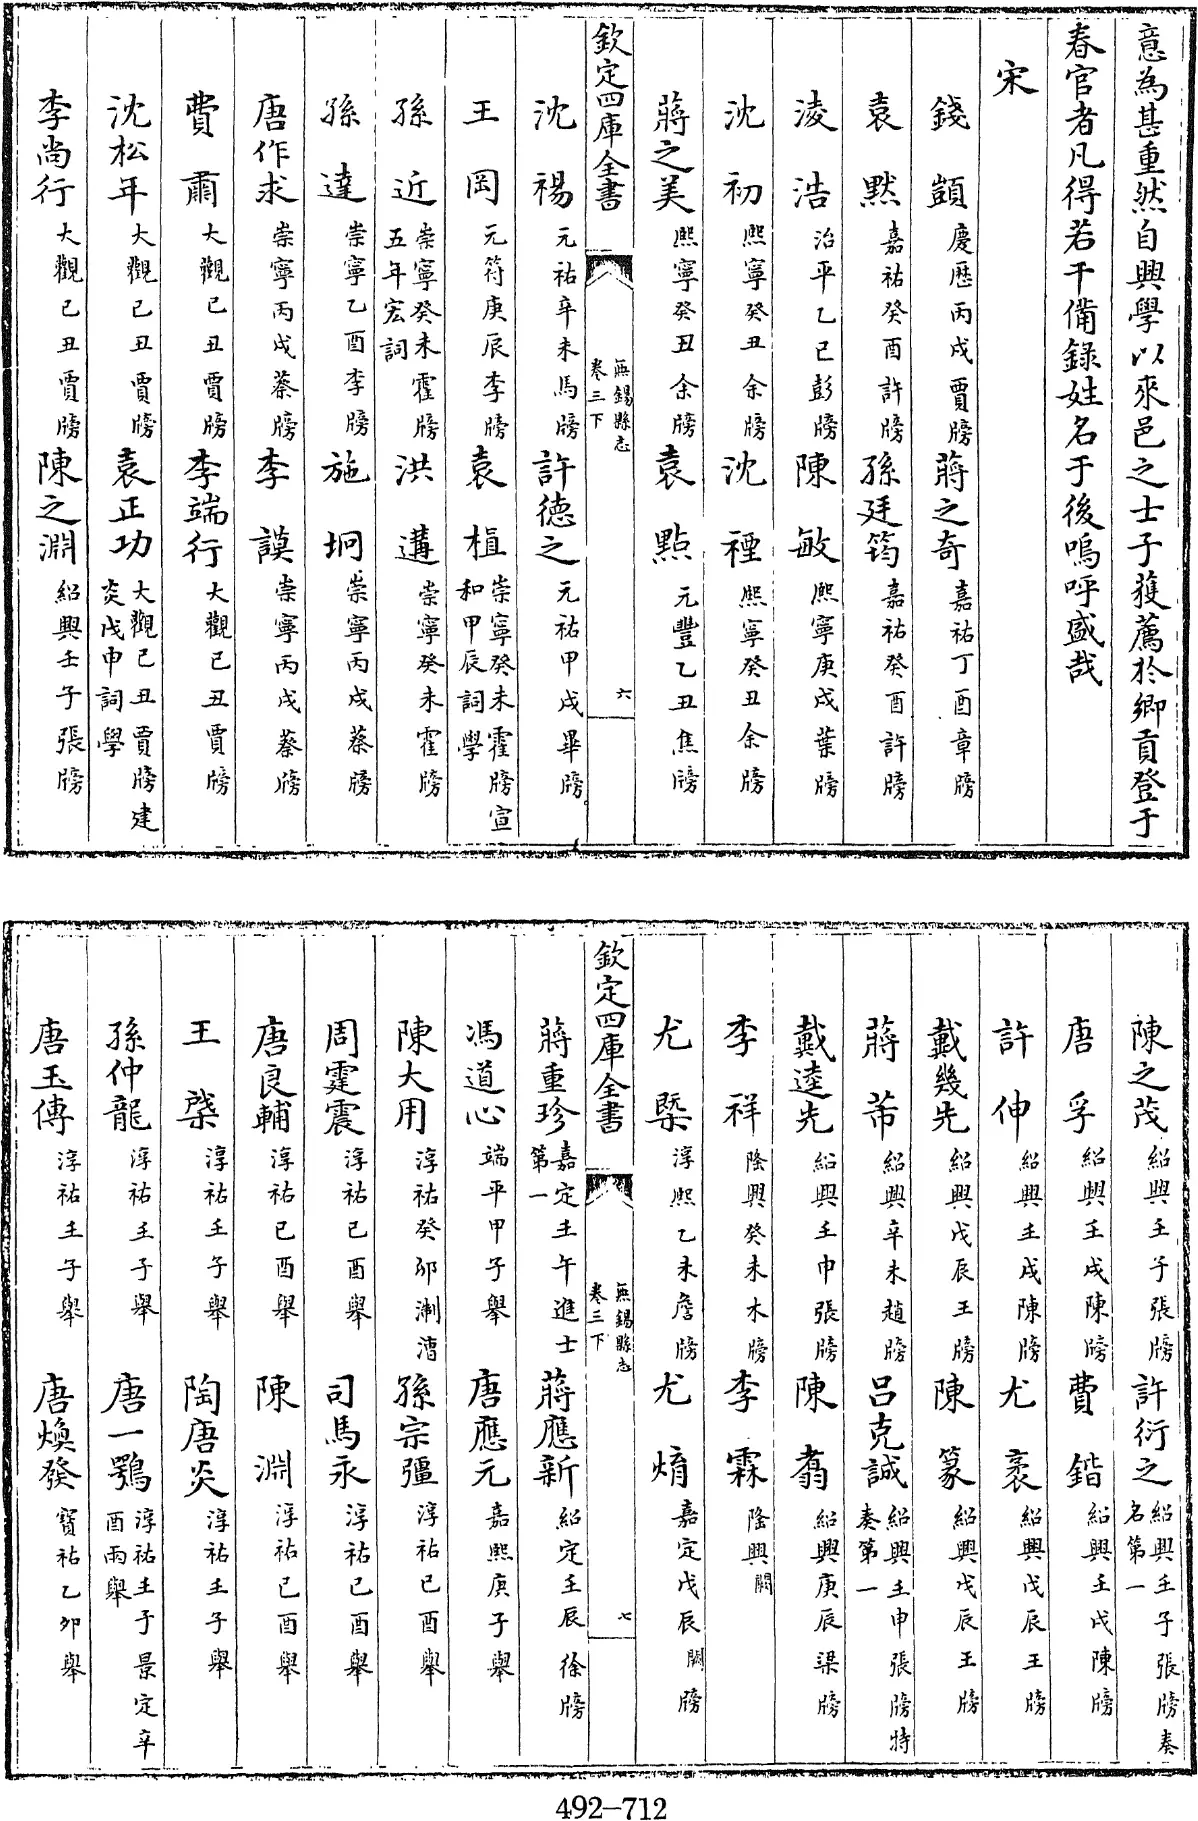 意為甚重然自興學以來邑之士子獲薦於鄉貢登于
春官者凡得若干備録姓名于後嗚呼盛哉
宋
錢顗 慶歴丙戌賈牓 蔣之奇 嘉祐丁酉章牓
袁默 嘉祐癸酉許牓 孫廷筠 嘉祐癸酉許牓
淩浩 治平乙巳彭牓 陳敏 熙寧庚戌葉牓
沈初 熙寧癸丑余牓 沈種 熙寧癸丑余牓
蔣之美 熙寧癸丑余牓 袁點 元豐乙丑焦牓
欽定四庫全書 無錫縣志 卷三下 六
沈裼 元祐辛未馬牓 許德之 元祐甲戌畢牓
王岡 元符庚辰李牓 袁植 崇寧癸未霍牓宣和甲辰詞學
孫近 崇寧癸未霍牓五年宏詞 洪遘 崇寧癸未霍牓
孫逹 崇寧乙酉李牓 施坰 崇寧丙戌蔡牓
唐作求 崇寧丙戌蔡牓 李謨 崇寧丙戌蔡牓
費肅 大觀己丑賈牓 李端行 大觀己丑賈牓
沈松年 大觀己丑賈牓 袁正功 大觀己丑賈牓建炎戊申詞學
李尚行 大觀己丑賈牓 陳之淵 紹興壬子張牓
陳之茂 紹興壬子張牓 許衍之 紹興壬子張牓奏名第一
唐孚 紹興壬戌陳牓 費鍇 紹興壬戌陳牓
許伸 紹興壬戌陳牓 尤袤 紹興戊辰王牓
戴幾先 紹興戊辰王牓 陳篆 紹興戊辰王牓
蔣芾 紹興辛未趙牓 吕克誠 紹興壬申張牓特奏第一
戴逵先 紹興壬申張牓 陳翥 紹興庚辰梁牓
李祥 隆興癸未木牓 李霖 隆興闕
尤㮣 淳熙乙未詹牓 尤焴 嘉定戊辰闕牓
欽定四庫全書 無錫縣志 卷三下 七
蔣重珍 嘉定壬午進士第一 蔣應新 紹定壬辰徐牓
馮道心 端平甲子舉 唐應元 嘉熙庚子舉
陳大用 淳祐癸卯淛漕 孫宗彊 淳祐己酉舉
周霆震 淳祐己酉舉 司馬永 淳祐己酉舉
唐良輔 淳祐己酉舉 陳淵 淳祐己酉舉
王棨 淳祐壬子舉 陶唐炎 淳祐壬子舉
孫仲龍 淳祐壬子舉 唐一鶚 淳祐壬子景定辛酉兩舉
唐玉傳 淳祐壬子舉 唐煥發 寳祐乙卯舉
492-712